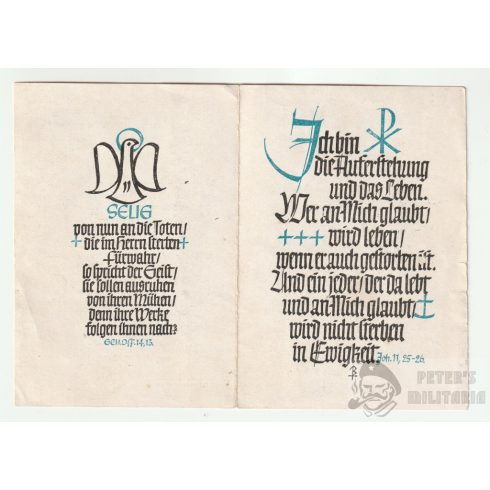 SELIG
von nun an die Toten/
die im Herrn sterben
Fürwahr/
so spricht der Geist/
sie sollen ausruhen
von ihren Mühen/
denn ihre Werke
folgen ihnen nach.
Geh. Off. 14, 13.
Ich bin
die Auferstehung
und das Leben.
Wer an Mich glaubt/
wird leben/
wenn er auch gestorben ist.
Und ein jeder/der da lebt
und an Mich glaubt/
wird nicht sterben
in Ewigkeit. Joh. 11, 25-26.
PETER'S
MILITARIA